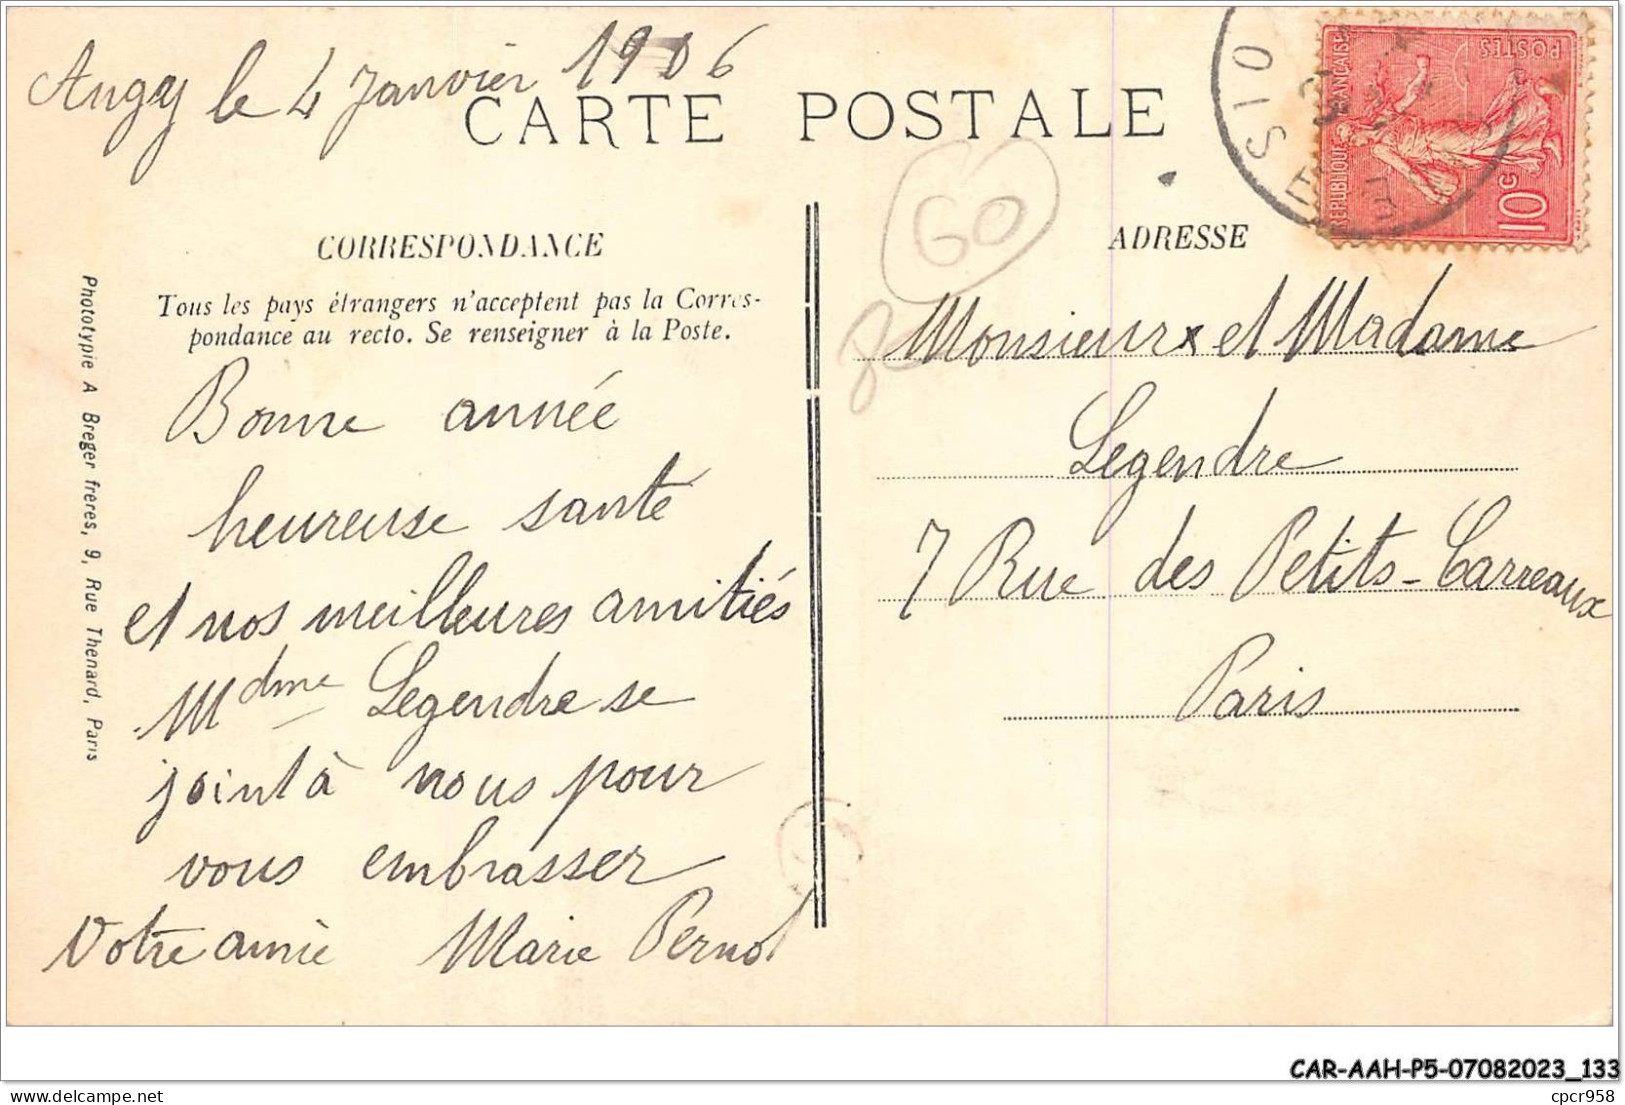 Angy le 4 Janvier 1906
CARTE POSTALE
CORRESPONDANCE
Tous les pays étrangers n'acceptent pas la Corres-
pondance au recto. Se renseigner à la Poste.
Bonne année
heureuse santé
et nos meilleures amitiés
Mdme Legendre se
joint à nous pour
vous embrasser
Votre amie Marie Pernot
Phototypie A Breger frères, 9, Rue Thenard, Paris
60
ADRESSE
Monsieur et Madame
Legendre
7 Rue des Petits-Carreaux
Paris
OISE
REPUBLIQUE FRANÇAISE
POSTES
10c
CAR-AAH-P5-07082023_133
cpcr958